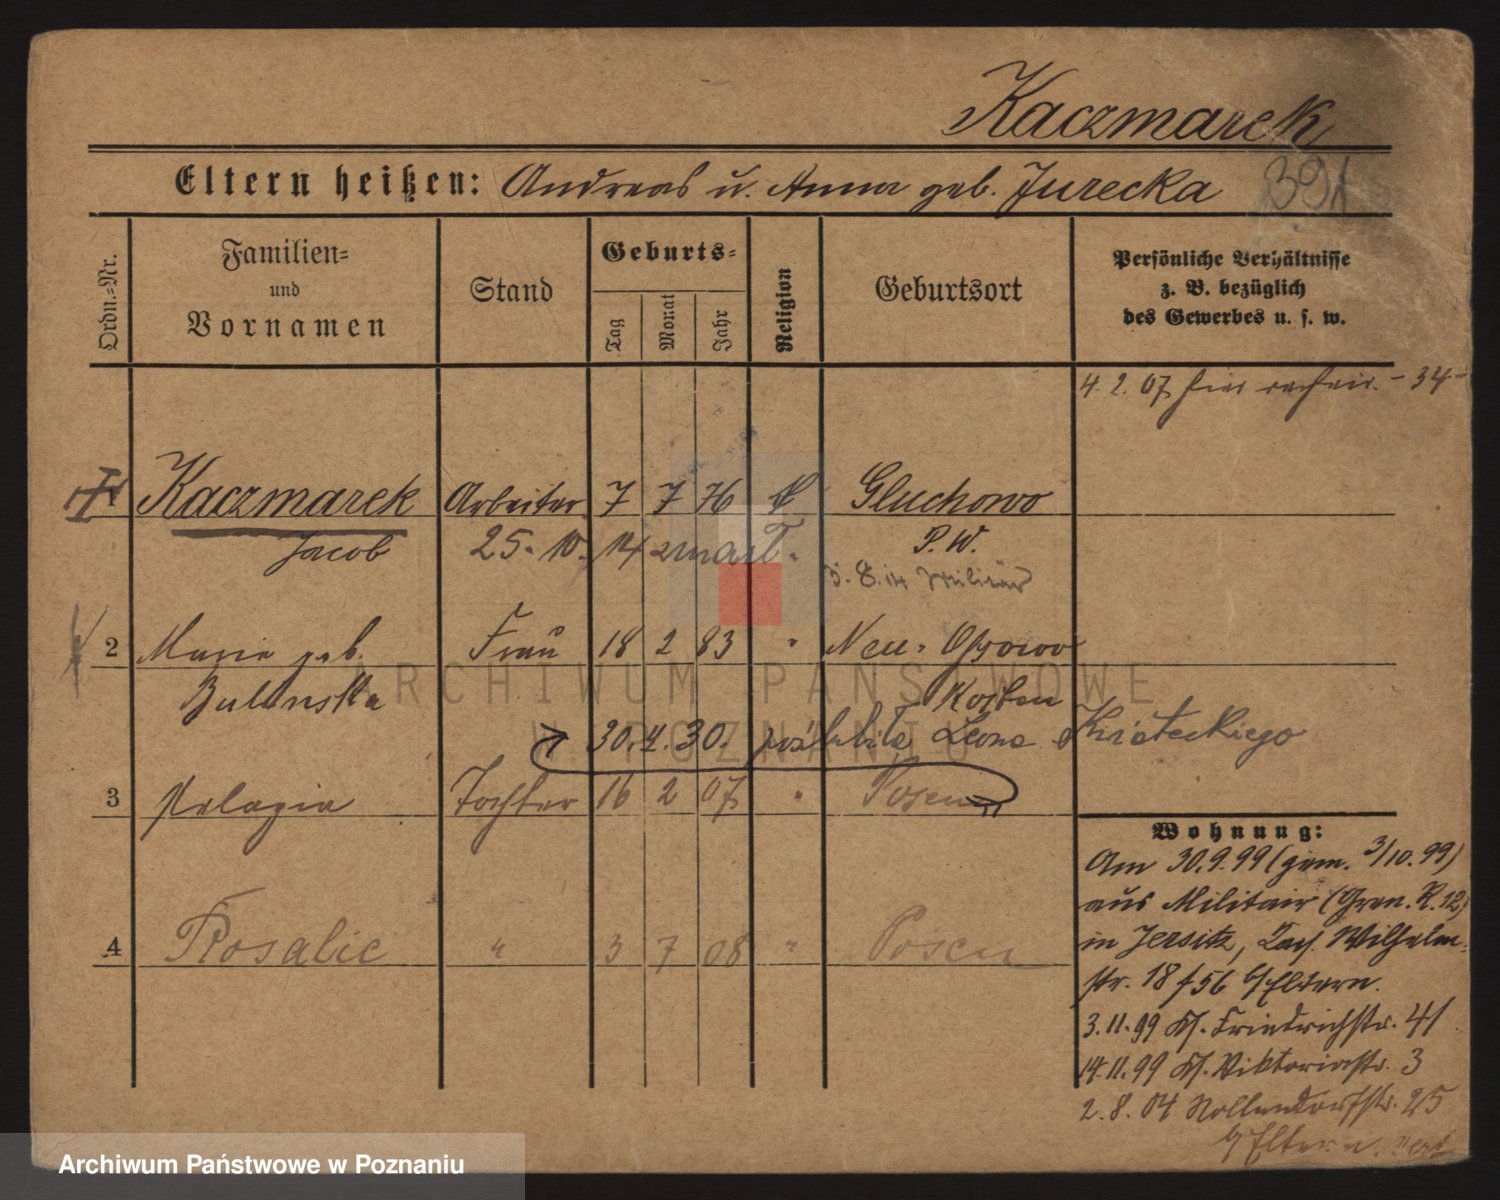 Kaczmarek
391
Eltern heißen: Andreas u. Anna geb. Jurecka
Ordn.-Nr.
Familien-
und
Vornamen
Stand
Geburts-
Tag
Monat
Jahr
Religion
Geburtsort
Persönliche Verhältnisse
z. B. bezüglich
des Gewerbes u. s. w.
4. 2. 07 hier - 34 -
1 Kaczmarek Arbeiter 7 7 76 Gluchowo
Jacob 25. 10. 14 zmarł. P. W.
3. 8. 14 Militär
2 Marie geb. Frau 18 2 83 " Neu-
Kosten
30. 4. 30. Leona
3 Pelagia Tochter 16 2 07 " Posen
4 Rosalie " 3 7 08 " Posen
Wohnung:
Am 30.9.99 (gem. 3/10.99)
aus Militair (Gren. R. 12)
in Jersitz, Wilhelm-
str. 18 b/Eltern.
3.11.99 Friedrichstr. 41
14.11.99 Viktoriastr. 3
2. 8. 04 Nollendorfstr. 25
b/Eltern.
ARCHIWUM PAŃSTWOWE
W POZNANIU
Archiwum Państwowe w Poznaniu